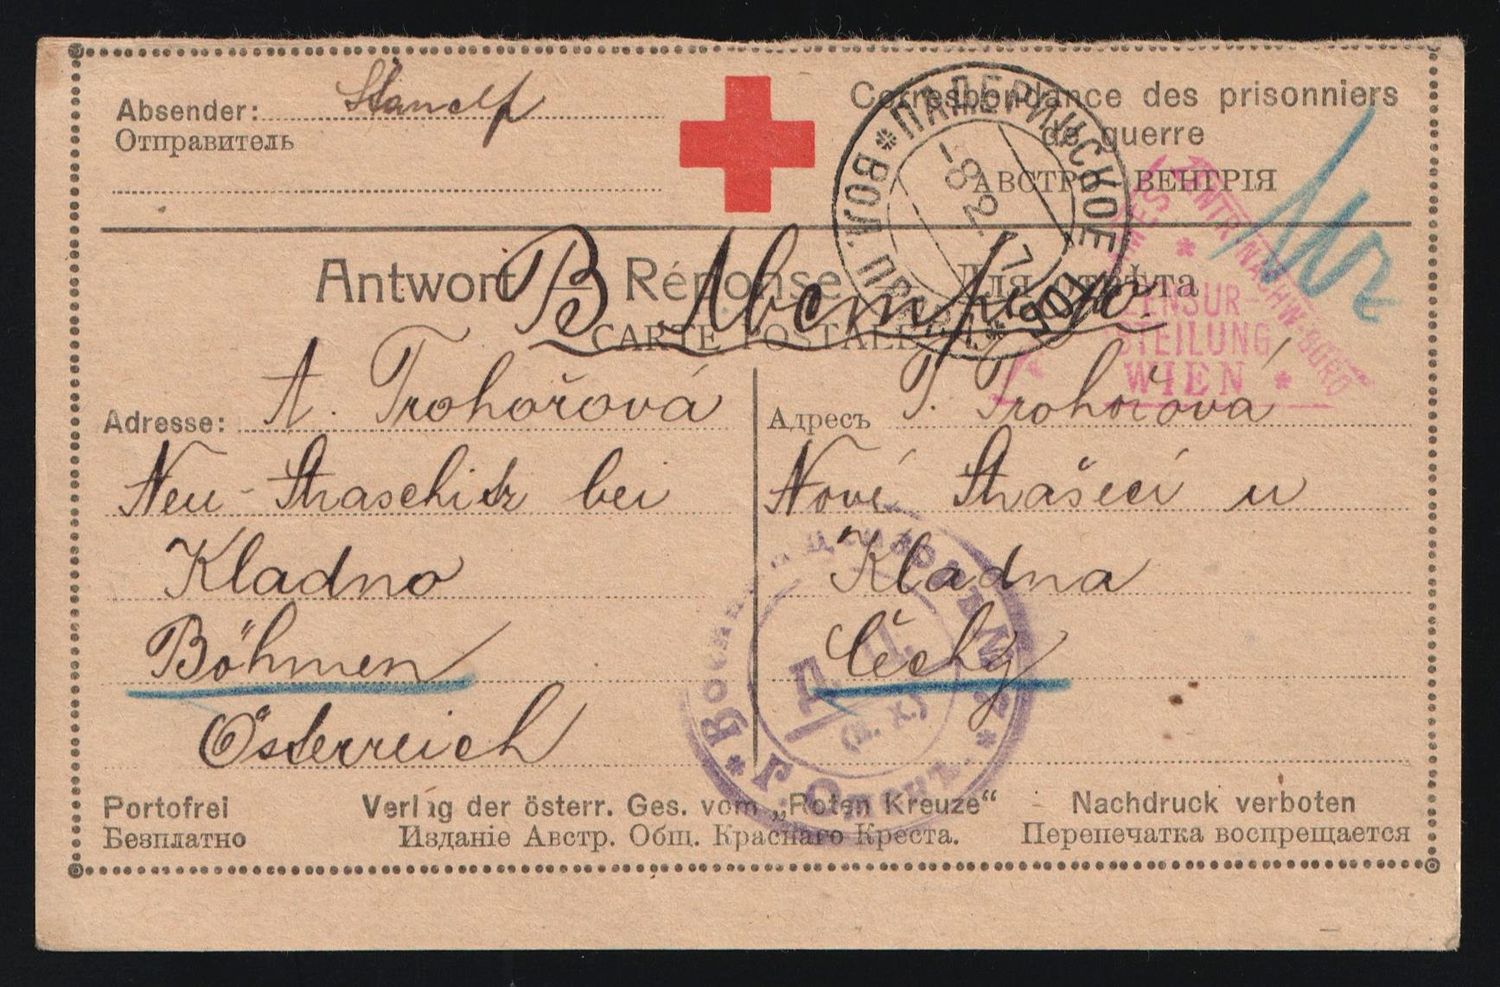 Absender:
Отправитель
Correspondance des prisonniers
de guerre
АВСТРО-ВЕНГРІЯ
ПАДЕРИНСКОЕ ВОЛ. ПРАВЛ.
-8.2.17
ZENTR.NACHW.BÜRO
ZENSUR-
WIEN
Antwort – Réponse – Для отвѣта
В Австрію
CARTE POSTALE
Adresse: A. Trohořová
Neu-Straschitz bei
Kladno
Böhmen
Österreich
Адресъ T. Trohořová
Nové Strašecí u
Kladna
Čechy
г. Омскъ.
Portofrei
Безплатно
Verlag der österr. Ges. vom „Roten Kreuze“
Изданіе Австр. Общ. Краснаго Креста.
Nachdruck verboten
Перепечатка воспрещается